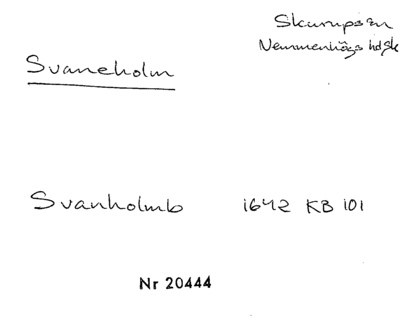 Skurups sn
Vemmenhögs hd Sk
Svaneholm
Svanholmb 1642 KB 101
Nr 20444